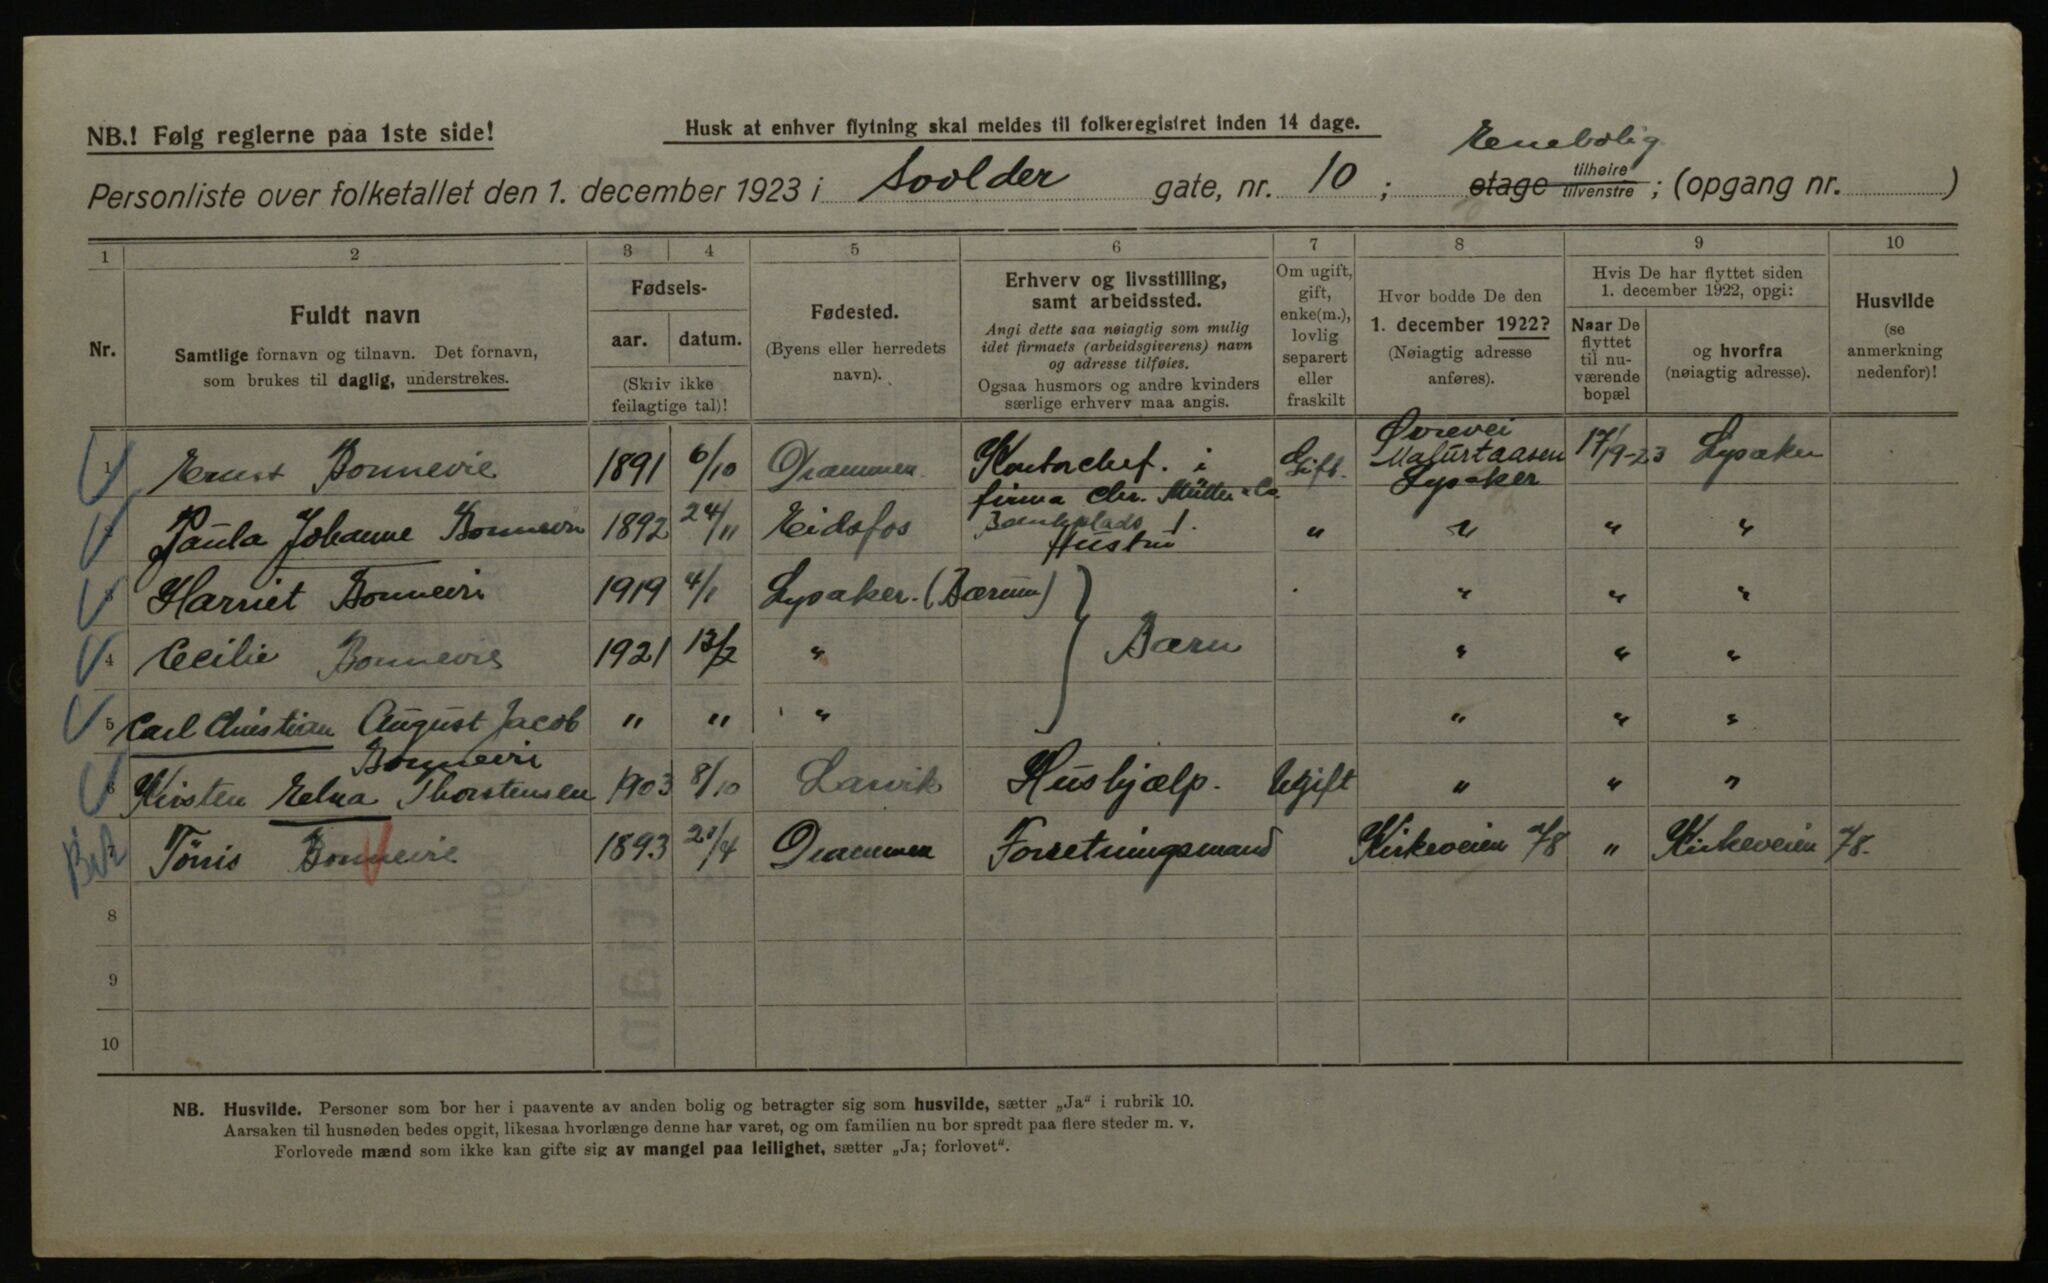 NB.! Følg reglerne paa 1ste side!
Husk at enhver flytning skal meldes til folkeregistret inden 14 dage.
Enebolig
Personliste over folketallet den 1. december 1923 i Svolder gate, nr. 10 ; etage tilhøire tilvenstre ; (opgang nr. )
1 2 3 4 5 6 7 8 9 10
Nr.
Fuldt navn
Samtlige fornavn og tilnavn. Det fornavn, som brukes til daglig, understrekes.
Fødsels-
aar. datum.
(Skriv ikke feilagtige tal)!
Fødested.
(Byens eller herredets navn).
Erhverv og livsstilling, samt arbeidssted.
Angi dette saa nøiagtig som mulig idet firmaets (arbeidsgiverens) navn og adresse tilføies.
Ogsaa husmors og andre kvinders særlige erhverv maa angis.
Om ugift, gift, enke(m.), lovlig separert eller fraskilt
Hvor bodde De den 1. december 1922?
(Nøiagtig adresse anføres).
Hvis De har flyttet siden 1. december 1922, opgi:
Naar De flyttet til nu- værende bopæl
og hvorfra (nøiagtig adresse).
Husvilde
(se anmerkning nedenfor)!
1 Ernst Bonnevie 1891 6/10 Drammen Kontorchef. i firma Chr. Gift. Øvrevei Lysaker 17/9-23 Lysaker
Paula Johanne Bonnevie 1892 24/11 Eidsfos Hustru " " " "
3 Harriet Bonnevie 1919 4/1 Lysaker. (Bærum) " " "
4 Cecilie Bonnevie 1921 13/2 " Barn " " "
5 Carl Christian August Jacob Bonnevie " " " " " "
6 Kirsten Edna Thorstensen 1903 8/10 Larvik Hushjælp. Ugift " " "
Tönis Bonnevie 1893 21/4 Drammen Forretningsmand Kirkeveien 78 " Kirkeveien 78.
8
9
10
NB. Husvilde. Personer som bor her i paavente av anden bolig og betragter sig som husvilde, sætter „Ja“ i rubrik 10.
Aarsaken til husnøden bedes opgit, likesaa hvorlænge denne har varet, og om familien nu bor spredt paa flere steder m. v.
Forlovede mænd som ikke kan gifte sig av mangel paa leilighet, sætter „Ja; forlovet“.